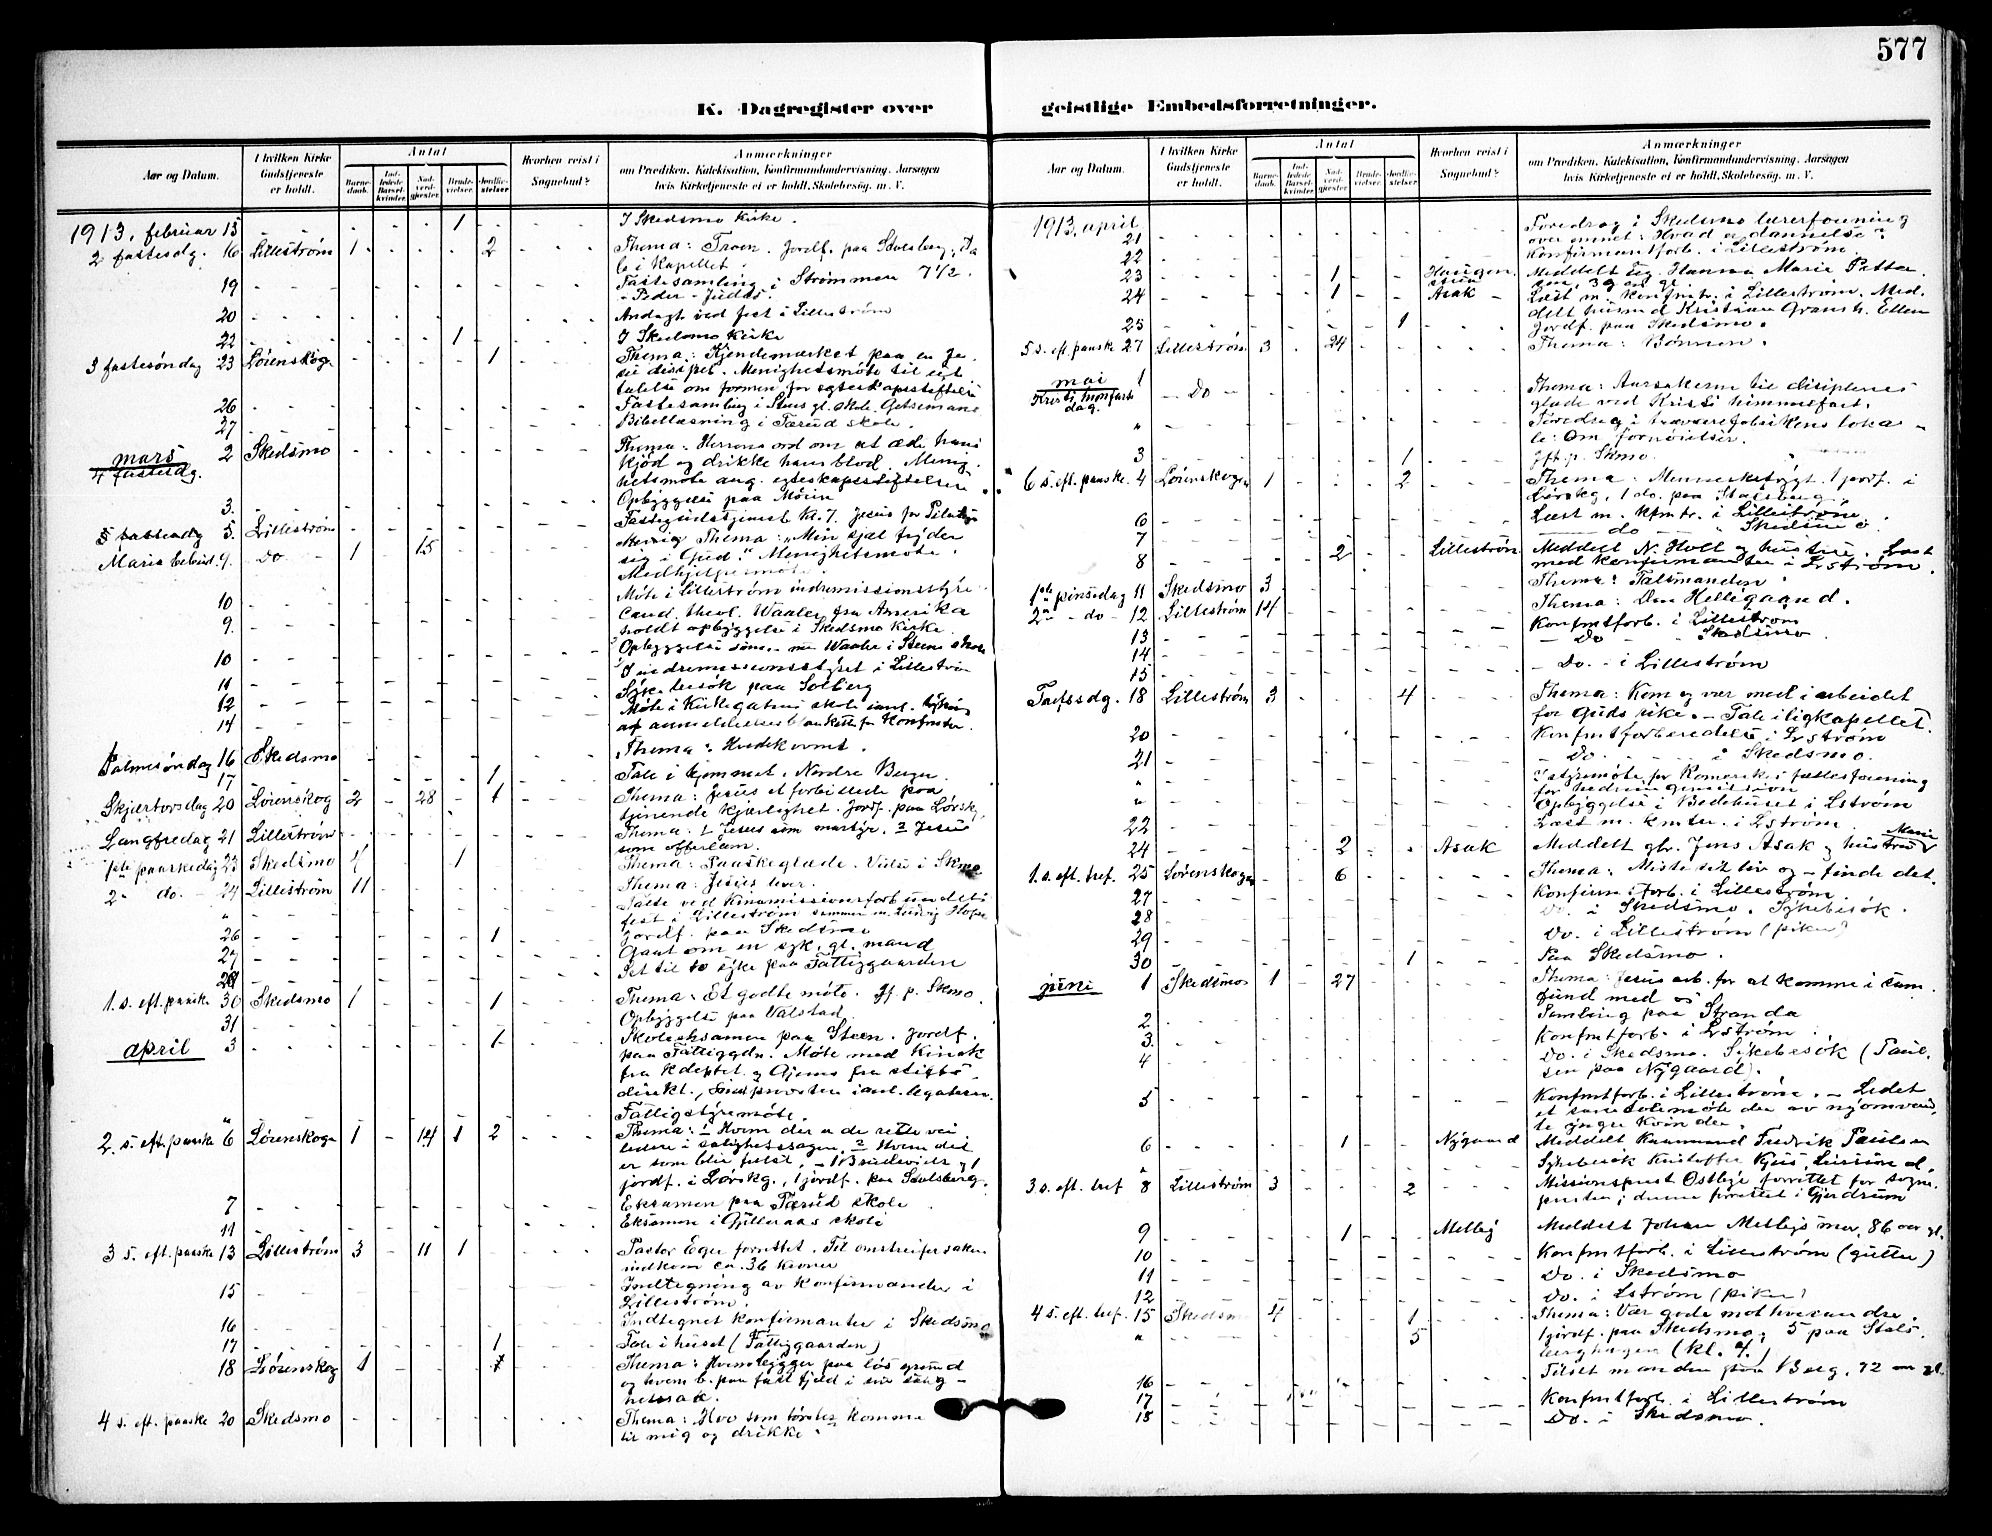 577
K. Dagregister over geistlige Embedsforretninger.
Aar og Datum.
I hvilken Kirke Gudstjeneste er holdt.
Antal
Barnedaab.
Indledede Barselkvinder.
Nadverdgjester.
Brudevielser.
Jordfæstelser.
Hvorhen reist i Sognebud?
Anmærkninger
om Prædiken, Katekisation, Konfirmandundervisning, Aarsagen
hvis Kirketjeneste ei er holdt, Skolebesøg, m. V.
1913. februar 15 1 I Skedsmo Kirke.
2 fastesdg. 16 Lillestrøm 1 2 Thema: Troen. Jordf. paa Stalsberg,
le i Kapellet.
19 Fastesamling i Strømmen 7 1/2.
- Peder - Judas.
20 Andagt ved fest i Lillestrøm
22 1 I Skedsmo Kirke
3 fastesøndag 23 Lørenskoge 1 Thema: Kjendemærket paa en Je-
su discipel. Menighetsmøte til ut
talelse om formen for egteskapsstiftelse
26 Fastesamling i Stens gl. skole. Getsemane
27 Bibellæsning i Færud skole.
mars 2 Skedsmo Thema: Herrens ord om at æde hans
4 fastesdg. kjød og drikke hans blod. Menig-
hetsmøte ang. egteskapsstiftelsen
3. Opbyggelse paa Møien
5 fastesdg 5. Lillestrøm Fastegudstjenest kl. 7. Jesus for Pilatus
Maria bebud. 9. Do 1 15 Thema: "Min sjæl fryder
sig i Gud." Menighetsmøte.
10 Møte i Lillestrøm indremissionsstyre
9. Cand. theol. Waaler fra Amerika
holdt opbyggelse i Skedsmo Kirke.
10 Opbyggelse samm. m. Waaler i Steens skole
11 I indremissionsstyret i Lillestrøm
12 Sykebesøk paa Solberg
14 Møte i Kirkegatens skole
Palmesøndag 16 Skedsmo Thema: Hvedekornet.
17 1 Tale i hjemmet. Nordre Berger
Skjærtorsdag 20 Lørenskog 2 28 1 Thema: Jesus et forbillede paa
tjenende kjærlighet. Jordf. paa Lørsk.
Langfredag 21 Lillestrøm Thema: 1 Jesus som martyr. 2 Jesus
som offerlam.
1ste paaskedag 23 Skedsmo 4 1 Thema: Paaskeglæde. Vielse i Skmo
2 " do. 24 Lillestrøm 11 Thema: Jesus lever.
" Talte ved Kinamissionsforbundets
fest i Lillestrøm sammen m. Ludvig Hope
26 1 Jordf. paa Skedsmo
27 Gaat om en syk, gl. mand
28 Set til to syke paa Fattiggaarden
1. s. eft. paaske 30 Skedsmo 1 1 Thema: Et godt møte. Jf. p. Skmo.
31 Opbyggelse paa Valstad
april 3 1 Skoleeksamen paa Steen. Jordf.
paa Fattiggdn. Møte med Kinck
fra Kdeptet. og Gjems fra stifts-
Fattigstyremøte.
2. s. eft. paaske 6 Lørenskoge 1 14 1 2 Thema: 1 Hvem der er de rette vei
ledere i salighetssagen. 2 Hvem det
er som blir frelst. - 1 Brudevielse og 1
jordf. i Lørskg., 1 jordf. paa Stalsberg.
7 Eksamen paa Færud skole
11 Eksamen i Gjelleraas skole
3 s. eft. paaske 13 Lillestrøm 3 11 1 Pastor Eger forrettet. Til omstreifersaken
indkom ca. 36 kroner
15 Indtegning av konfirmander i
Lillestrøm.
16 Indtegnet konfirmanter i Skedsmo
17 1 Tale i huset (Fattiggaarden)
18 Lørenskog 1 1 Thema: Hvem bygger paa løs grund
og hvem b. paa fast fjeld i sin salig-
hetssak.
4 s. eft. paaske 20 Skedsmo Thema: Hvo som tørster komme
til mig og drikke.
Aar og Datum.
I hvilken Kirke Gudstjeneste er holdt.
Antal
Barnedaab.
Indledede Barselkvinder.
Nadverdgjester.
Brudevielser.
Jordfæstelser.
Hvorhen reist i Sognebud?
Anmærkninger
om Prædiken, Katekisation, Konfirmandundervisning, Aarsagen
hvis Kirketjeneste ei er holdt, Skolebesøg, m. V.
1913. april 21 Foredrag i Skedsmo lærerforening
over emnet: Hvad er dannelse?
22 Konfirmantforb. i Lillestrøm
23 1 Haugen Meddelt Frk. Hanna Marie Petter
24 1 Asak Læst m. konfmtr. i Lillestrøm. Med-
delt husmd Kristian
25 1 Jordf. paa Skedsmo.
5 s. eft. paaske 27 Lillestrøm 3 24 Thema: Bønnen.
mai 1 Do Thema: Aarsakerne til disiplenes
Kristi himfartsdag. glæde ved Kristi himmelfart.
" Foredrag i trævarefabrikens loka-
le: Om fornøielser.
3 1 Jft. p. Skmo.
6 s. eft. paaske. 4 Lørenskogen 1 2 Thema: Menneskefrygt. 1 jordf. i
Lørskg, 1 do. paa Stalsberg.
6 Læst m. Kfmtr. i Lillestrøm.
7 do " Skedsmo.
8 2 Lillestrøm Meddelt N. Holt og hustru. Læst
med konfirmanter i Lstrøm.
1ste pinsedag 11 Skedsmo 3 Thema: Talsmanden.
2n - do - 12 Lillestrøm 14 Thema: Den Helligaand.
13 Konfmtforb. i Lillestrøm
14 - Do - Skedsmo.
15 - Do. - i Lillestrøm
Trefssdg. 18 Lillestrøm 3 4 Thema: Kom og vær med i arbeidet
for Guds rike. - Tale i ligkapellet.
20 Konfmtforberedelse i Lstrøm
21 - Do. - i Skedsmo.
" I styremøte for Romerikes fællesforening
for indremission
" Opbyggelse i Bedehuset i Lstrøm
22 Læst m. kmtr. i Lstrøm
24 2 Asak Meddelt gbr. Jens Asak og hustru Marie
1. s. eft. tref. 25 Lørenskogen 6 Thema: Miste sit liv og - finde det.
27 Konfirm. forb. i Lillestrøm
28 Do. i Skedsmo. Sykebesøk.
29 Do. i Lillestrøm (piker)
30 1 Paa Skedsmo.
juni 1 Skedsmo 1 27 Thema: Jesus arb. for at komme i sam-
fund med os
2 Samling paa Stranda
3. Konfmtforb. i Lstrøm.
4 Do. i Skedsmo. Sykebesøk (Paul-
sen paa Nygaard).
5 Konfmtforb. i Lillestrøm. - Ledet
et samtalemøte
te yngre kvinder.
6 1 Nygaard Meddelt Kaarmand Fredrik Paulsen
" Sykebesøk Kristoffer Kjus,
3 s. eft. tref 8 Lillestrøm 3 2 Missionsprest Østbye forrettet for sogne-
presten; denne forrettet i Gjerdrum
9 1 Melleg Meddelt Johan Mellegs mor, 86 aar gl.
10 Konfmtforb. i Lillestrøm (gutter)
11 Do. i Skedsmo
12 Do. i Lstrøm (piker)
4 s. eft. tref. 15 Skedsmo 4 1 Thema: Vær gode mot hverandre.
" 5 1 jordf. paa Skedsmo; 5 paa Stals-
berghagen (kl. 4.)
16 Tilset manden paa Berg, 72 aar gl.
17 Konfmtforb. i Lillestrøm
18 Do. i Skedsmo.